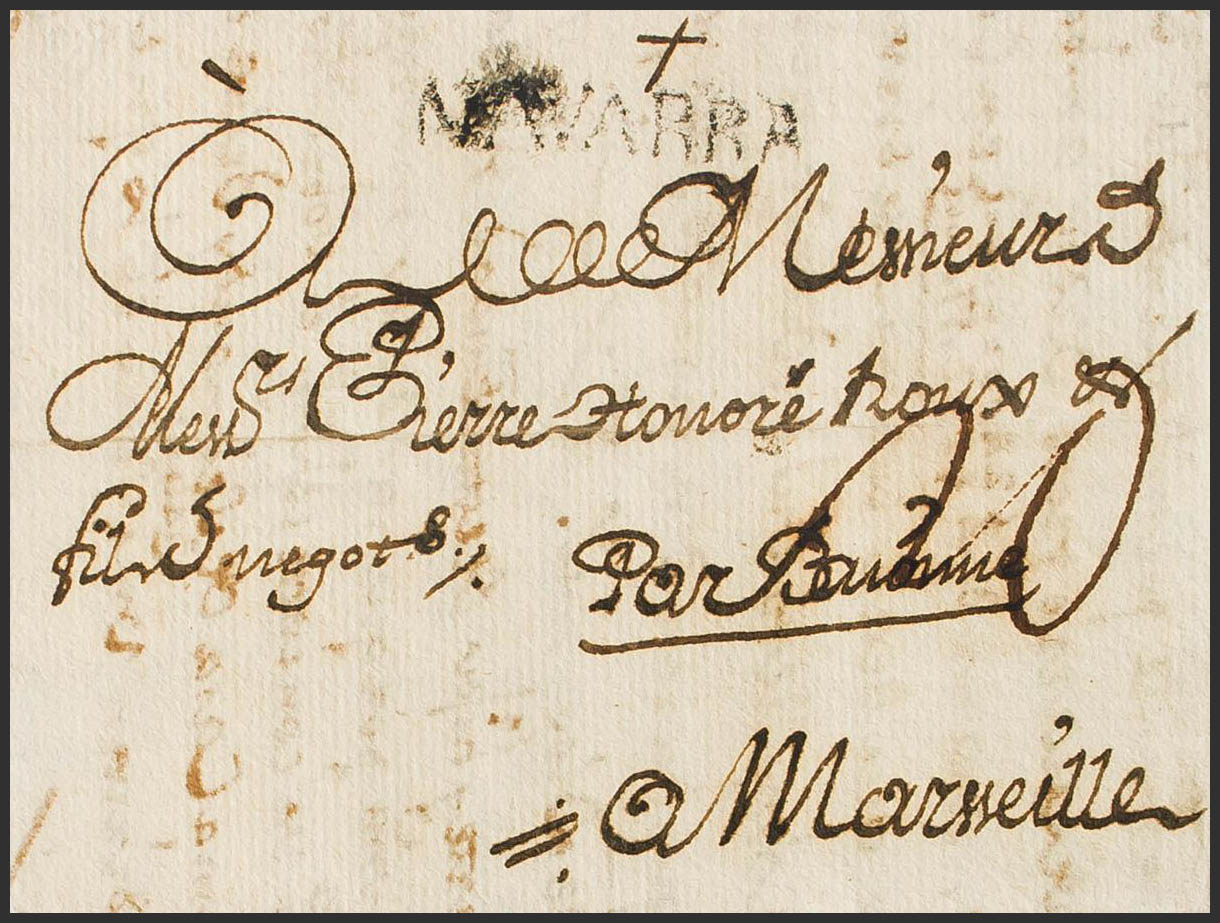 NAVARRA
À Messieurs
Mess.rs Pierre Honoré Roux &
fils negots ./.
Par Baionne
= a Marseille